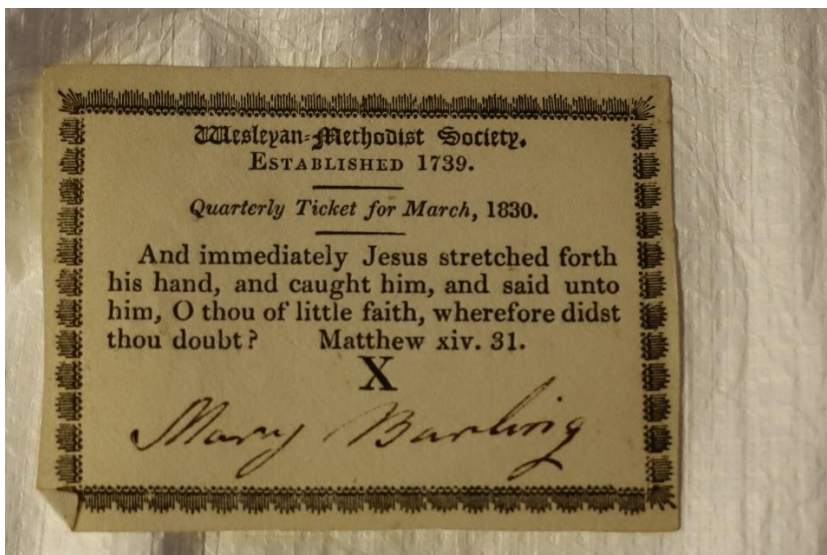 Wesleyan-Methodist Society.
ESTABLISHED 1739.
Quarterly Ticket for March, 1830.
And immediately Jesus stretched forth
his hand, and caught him, and said unto
him, O thou of little faith, wherefore didst
thou doubt? Matthew xiv. 31.
X
Mary Barling